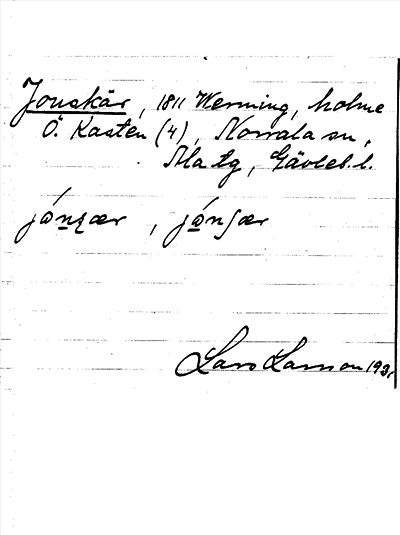 Jonskär, 1811 Werming, holme
Ö. Kasten (4), Norrala sn,
Ala tg, Gävleb. l.
jónʂær, jónʃær
Lars Larsson 193